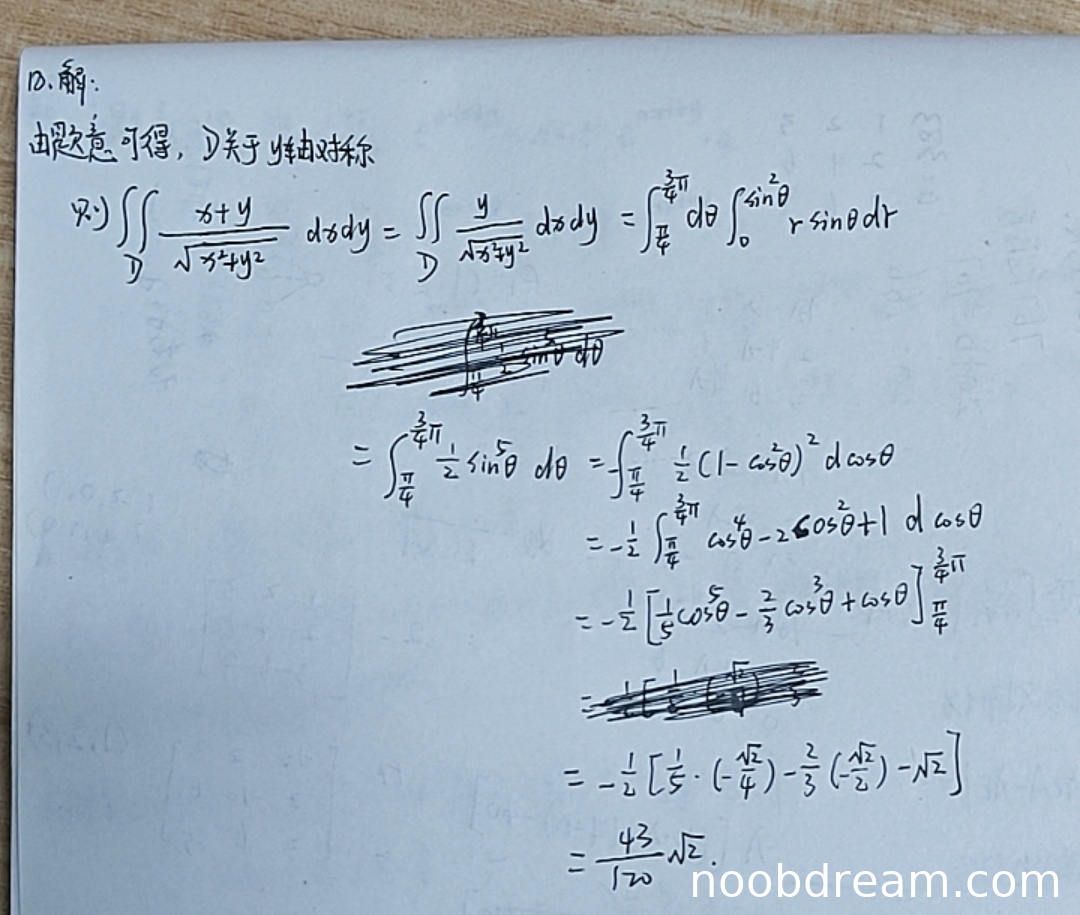 19.解:
由题意可得, D关于y轴对称
则 ∬_D (x+y)/√(x²+y²) dxdy = ∬_D y/√(x²+y²) dxdy = ∫_{π/4}^{3/4π} dθ ∫_0^{sin²θ} r sinθ dr
= ∫_{π/4}^{3/4π} 1/2 sin⁵θ dθ = -∫_{π/4}^{3/4π} 1/2 (1-cos²θ)² dcosθ
= -1/2 ∫_{π/4}^{3/4π} cos⁴θ - 2cos²θ + 1 d cosθ
= -1/2 [1/5 cos⁵θ - 2/3 cos³θ + cosθ]_{π/4}^{3/4π}
= -1/2 [1/5 · (-√2/4) - 2/3 (-√2/2) - √2]
= 43/120 √2.
noobdream.com